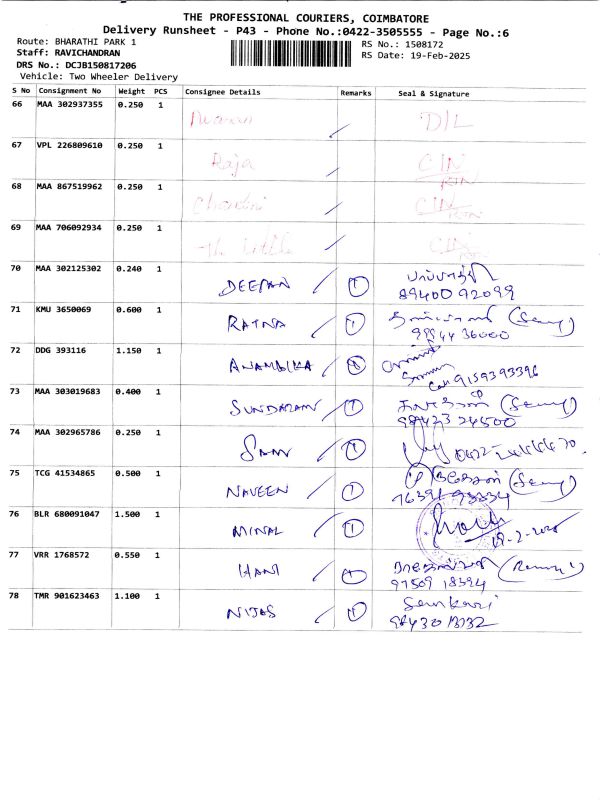 THE PROFESSIONAL COURIERS, COIMBATORE
Delivery Runsheet - P43 - Phone No.:0422-3505555 - Page No.:6
Route: BHARATHI PARK 1
Staff: RAVICHANDRAN
DRS No.: DCJB150817206
Vehicle: Two Wheeler Delivery
RS No.: 1508172
RS Date: 19-Feb-2025
S No Consignment No Weight PCS Consignee Details Remarks Seal & Signature
66 MAA 302937355 0.250 1 D/L
67 VPL 226809610 0.250 1 Raja CIN RTN
68 MAA 867519962 0.250 1 CIN RTN
69 MAA 706092934 0.250 1 The Little CIN
70 MAA 302125302 0.240 1 DEEPAN 1
89400 92099
71 KMU 3650069 0.600 1 RATNA 1
99944 36000
72 DDG 393116 1.150 1 ANAMBIKA
9159393396
73 MAA 303019683 0.400 1 SUNDARAM 1
98423 24500
74 MAA 302965786 0.250 1 SAM 1
75 TCG 41534865 0.500 1 NAVEEN 1
76 BLR 680091047 1.500 1 MINAL 1
77 VRR 1768572 0.550 1 HANI 1
97509 18394
78 TMR 901623463 1.100 1 NIJAS 1 Senkari